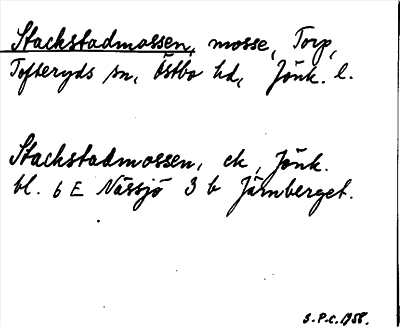 Stackstadmossen, mosse, Torp,
Tofteryds sn, Östbo hd, Jönk. l.
Stackstadmossen, ek, Jönk.
bl. 6 E Nässjö 3 b Järnberget.
S.P.C. 1958.